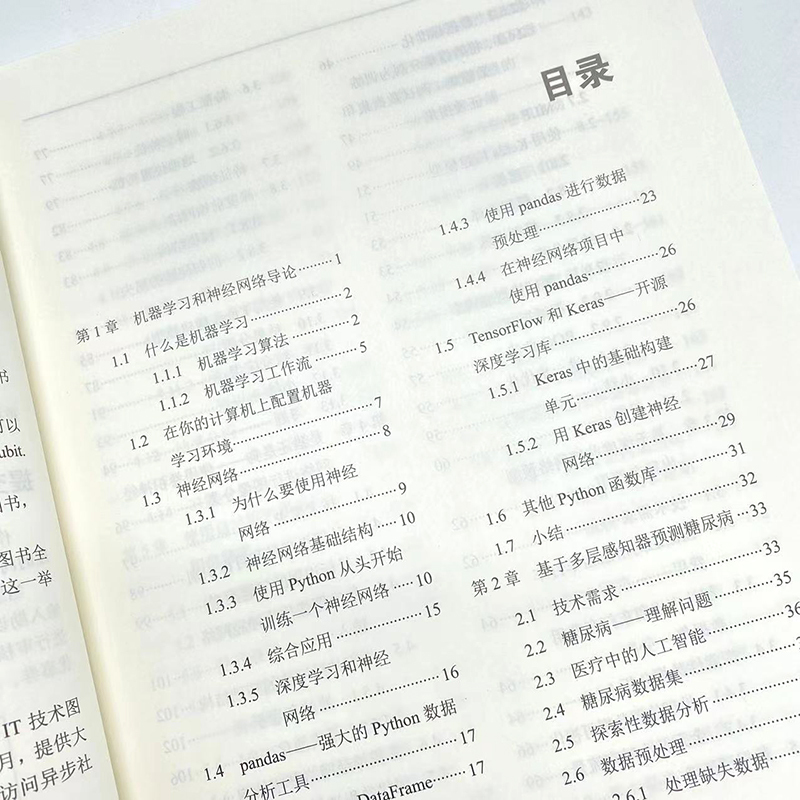 目录
第 1 章 机器学习和神经网络导论……1
1.1 什么是机器学习……2
1.1.1 机器学习算法……2
1.1.2 机器学习工作流……5
1.2 在你的计算机上配置机器
学习环境……7
1.3 神经网络……8
1.3.1 为什么要使用神经
网络……9
1.3.2 神经网络基础结构……10
1.3.3 使用 Python 从头开始
训练一个神经网络……10
1.3.4 综合应用……15
1.3.5 深度学习和神经
网络……16
1.4 pandas——强大的 Python 数据
分析工具……17
DataFrame……17
1.4.3 使用 pandas 进行数据
预处理……23
1.4.4 在神经网络项目中
使用 pandas……26
1.5 TensorFlow 和 Keras——开源
深度学习库……26
1.5.1 Keras 中的基础构建
单元……27
1.5.2 用 Keras 创建神经
网络……29
1.6 其他 Python 函数库……31
1.7 小结……32
第 2 章 基于多层感知器预测糖尿病……33
2.1 技术需求……33
2.2 糖尿病——理解问题……35
2.3 医疗中的人工智能……36
2.4 糖尿病数据集……
2.5 探索性数据分析……
2.6 数据预处理……
2.6.1 处理缺失数据
书
可以
ubit.
书，
图书全
这一举
IT 技术图
月，提供大
访问异步社